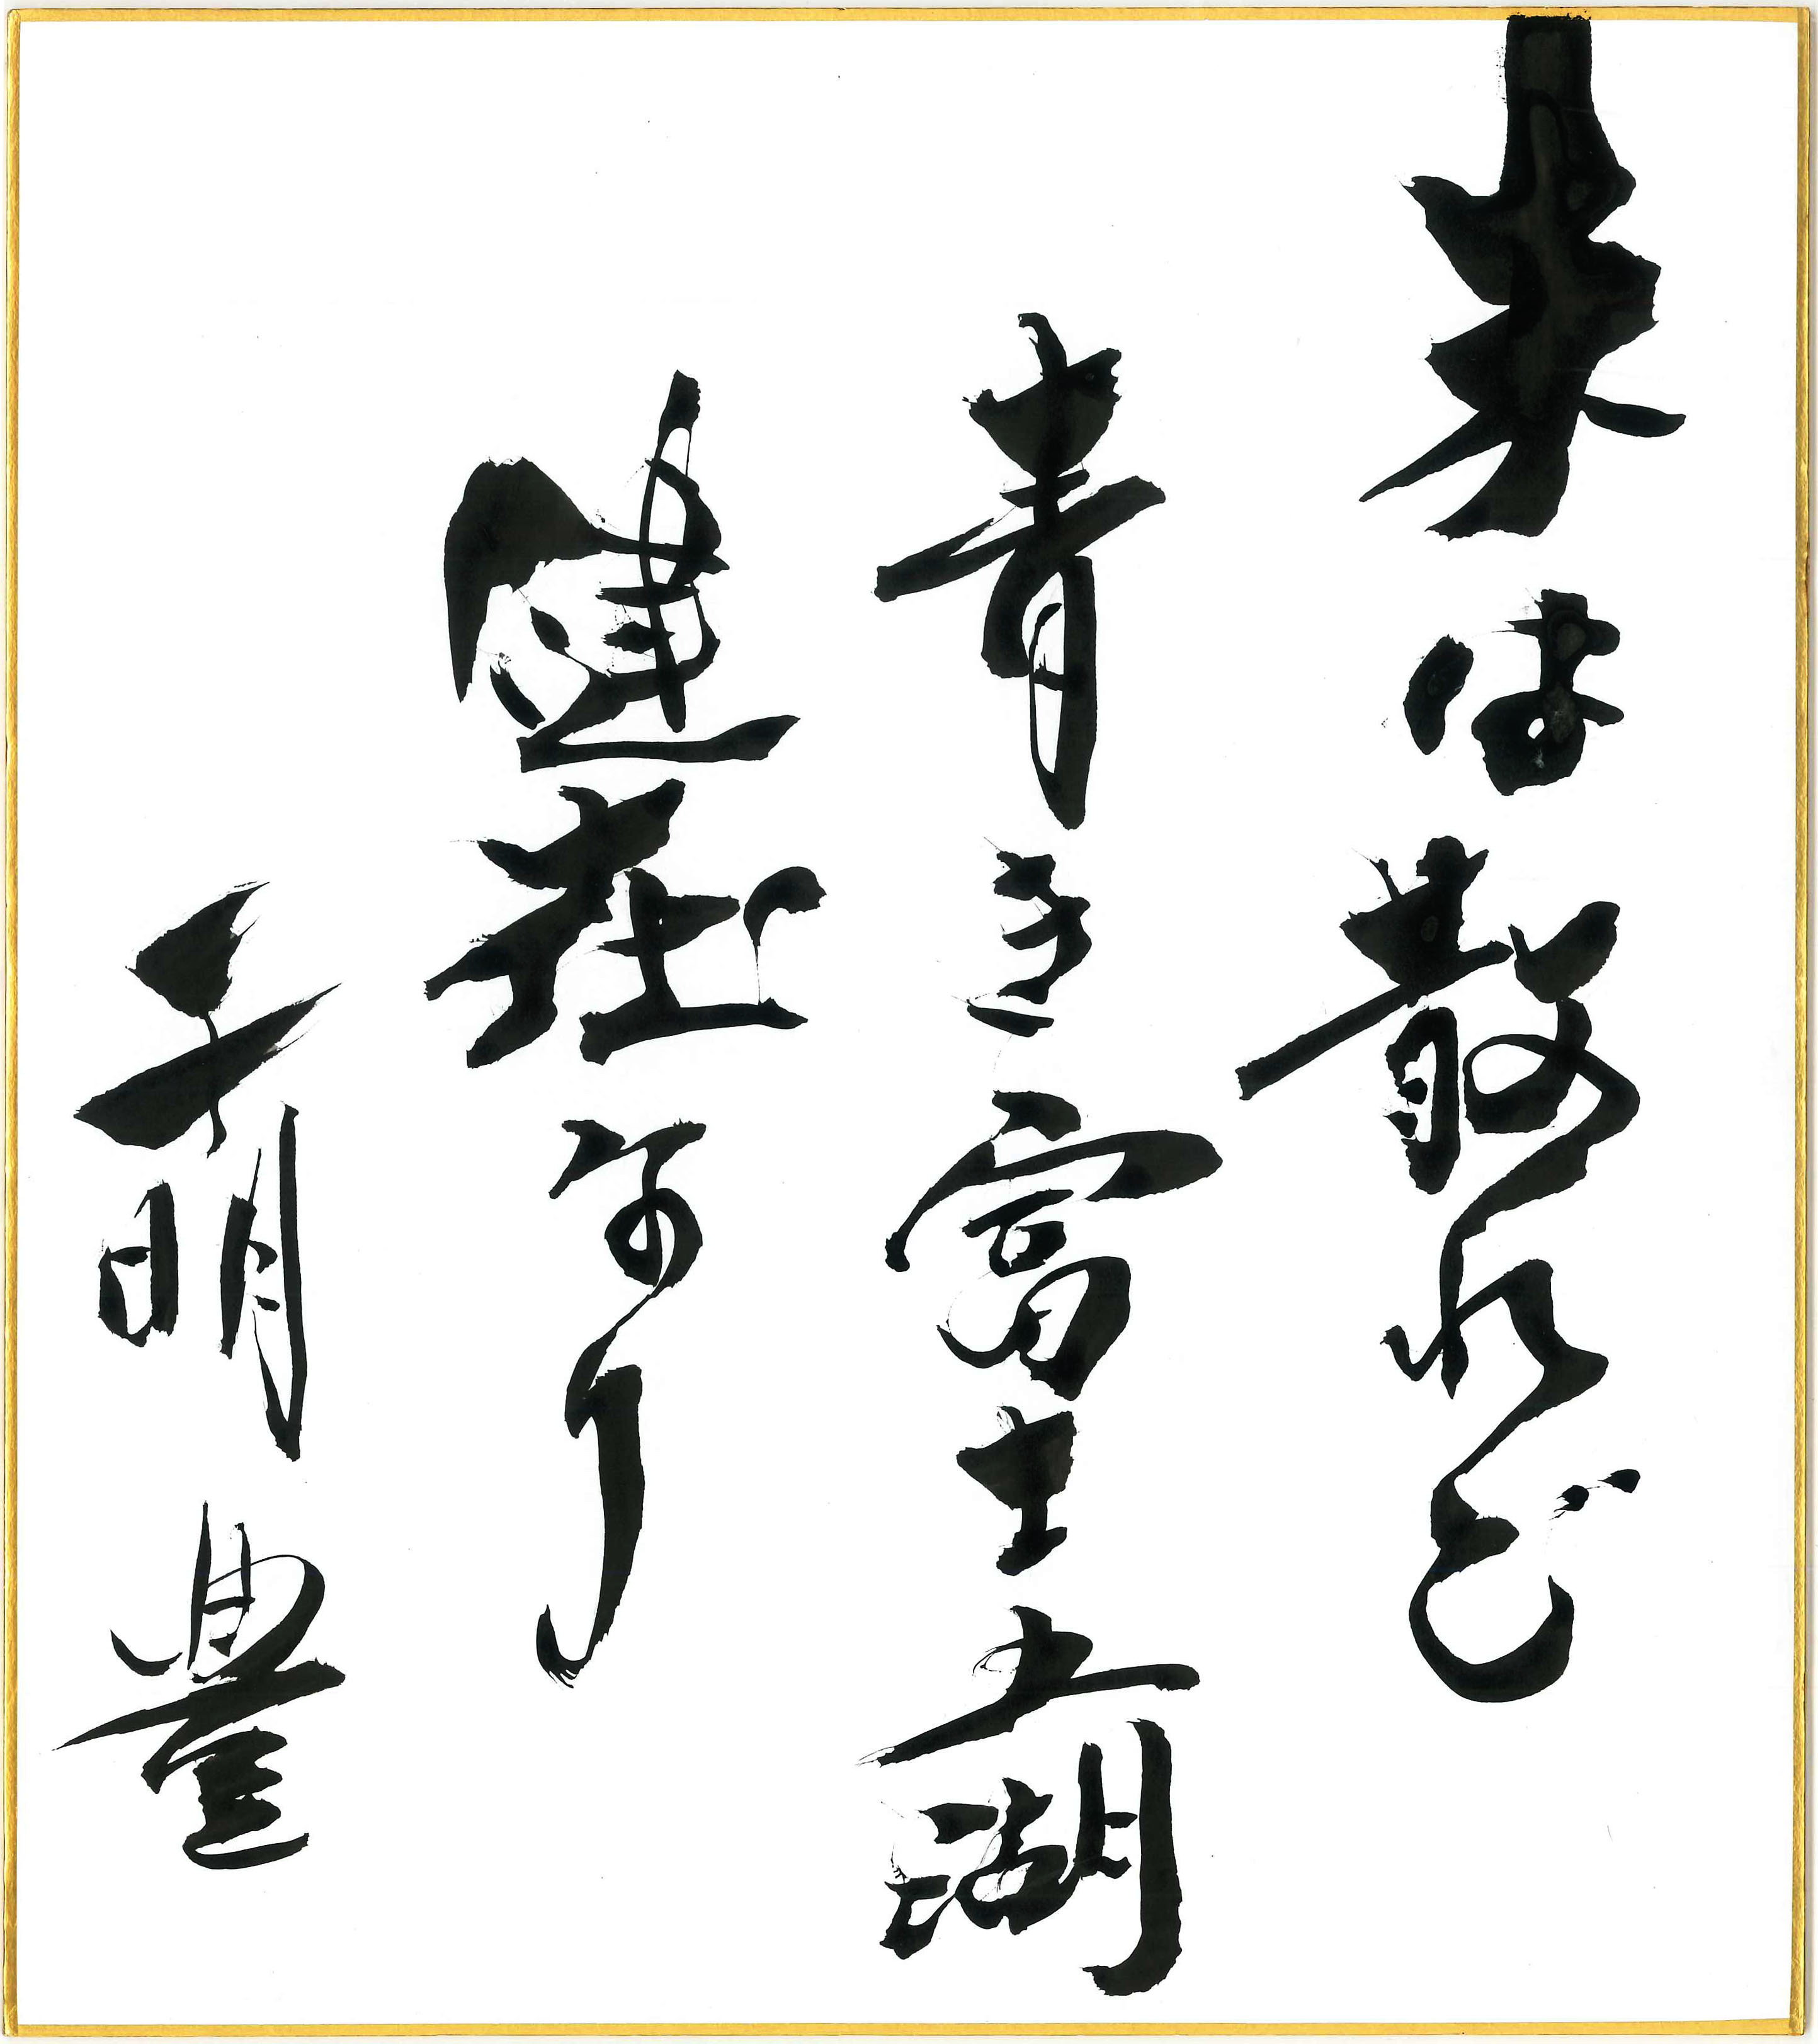 朱は散れど
青き富士五湖
健在なり
千明豊